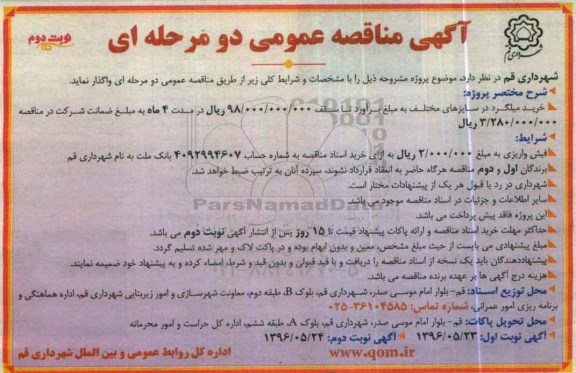 آگهی مناقصه عمومی دو مرحله ای
نوبت دوم
شهرداری قم در نظر دارد، موضوع پروژه مشروحه ذیل را با مشخصات و شرایط کلی زیر از طریق مناقصه عمومی دو مرحله ای واگذار نماید.
شرح مختصر پروژه:
خرید میلگرد در سایزهای مختلف به مبلغ برآورد تا سقف ۹۸/۰۰۰/۰۰۰/۰۰۰ ریال در مدت ۴ ماه به مبلغ ضمانت شرکت در مناقصه
۳/۲۸۰/۰۰۰/۰۰۰ ریال
شرایط:
فیش واریزی به مبلغ ۲/۰۰۰/۰۰۰ ریال به ازای خرید اسناد مناقصه به شماره حساب ۴۰۹۲۹۹۴۶۰۷ بانک ملت به نام شهرداری قم
برندگان اول و دوم مناقصه هرگاه حاضر به انعقاد قرارداد نشوند، سپرده آنان به ترتیب ضبط خواهد شد.
شهرداری در رد یا قبول هر یک از پیشنهادات مختار است.
سایر اطلاعات و جزئیات در اسناد مناقصه موجود می باشد.
این پروژه فاقد پیش پرداخت می باشد.
ParsNamadData
حداکثر مهلت خرید اسناد مناقصه و ارائه پاکات پیشنهاد قیمت تا ۱۵ روز پس از انتشار آگهی نوبت دوم می باشد.
مبلغ پیشنهادی می بایست از حیث مبلغ مشخص، معین و بدون ابهام بوده و در پاکت لاک و مهر شده تسلیم گردد.
پیشنهاددهندگان باید یک نسخه از اسناد مناقصه را دریافت و با قید قبولی و بدون قید و شرط، امضاء کرده و به پیشنهاد خود ضمیمه نمایند.
هزینه درج آگهی ها بر عهده برنده مناقصه می باشد.
محل توزیع اسناد: قم- بلوار امام موسی صدر، شهرداری قم، بلوک B، طبقه دوم، معاونت شهرسازی و امور زیربنایی شهرداری قم، اداره هماهنگی و
برنامه ریزی امور عمرانی، شماره تماس: ۳۶۱۰۴۵۸۵-۰۲۵
محل تحویل پاکات: قم- بلوار امام موسی صدر، شهرداری قم، بلوک A، طبقه ششم، اداره کل حراست و امور محرمانه
آگهی نوبت اول: ۱۳۹۶/۰۵/۲۳ آگهی نوبت دوم: ۱۳۹۶/۰۵/۲۴
www.qom.ir اداره کل روابط عمومی و بین الملل شهرداری قم